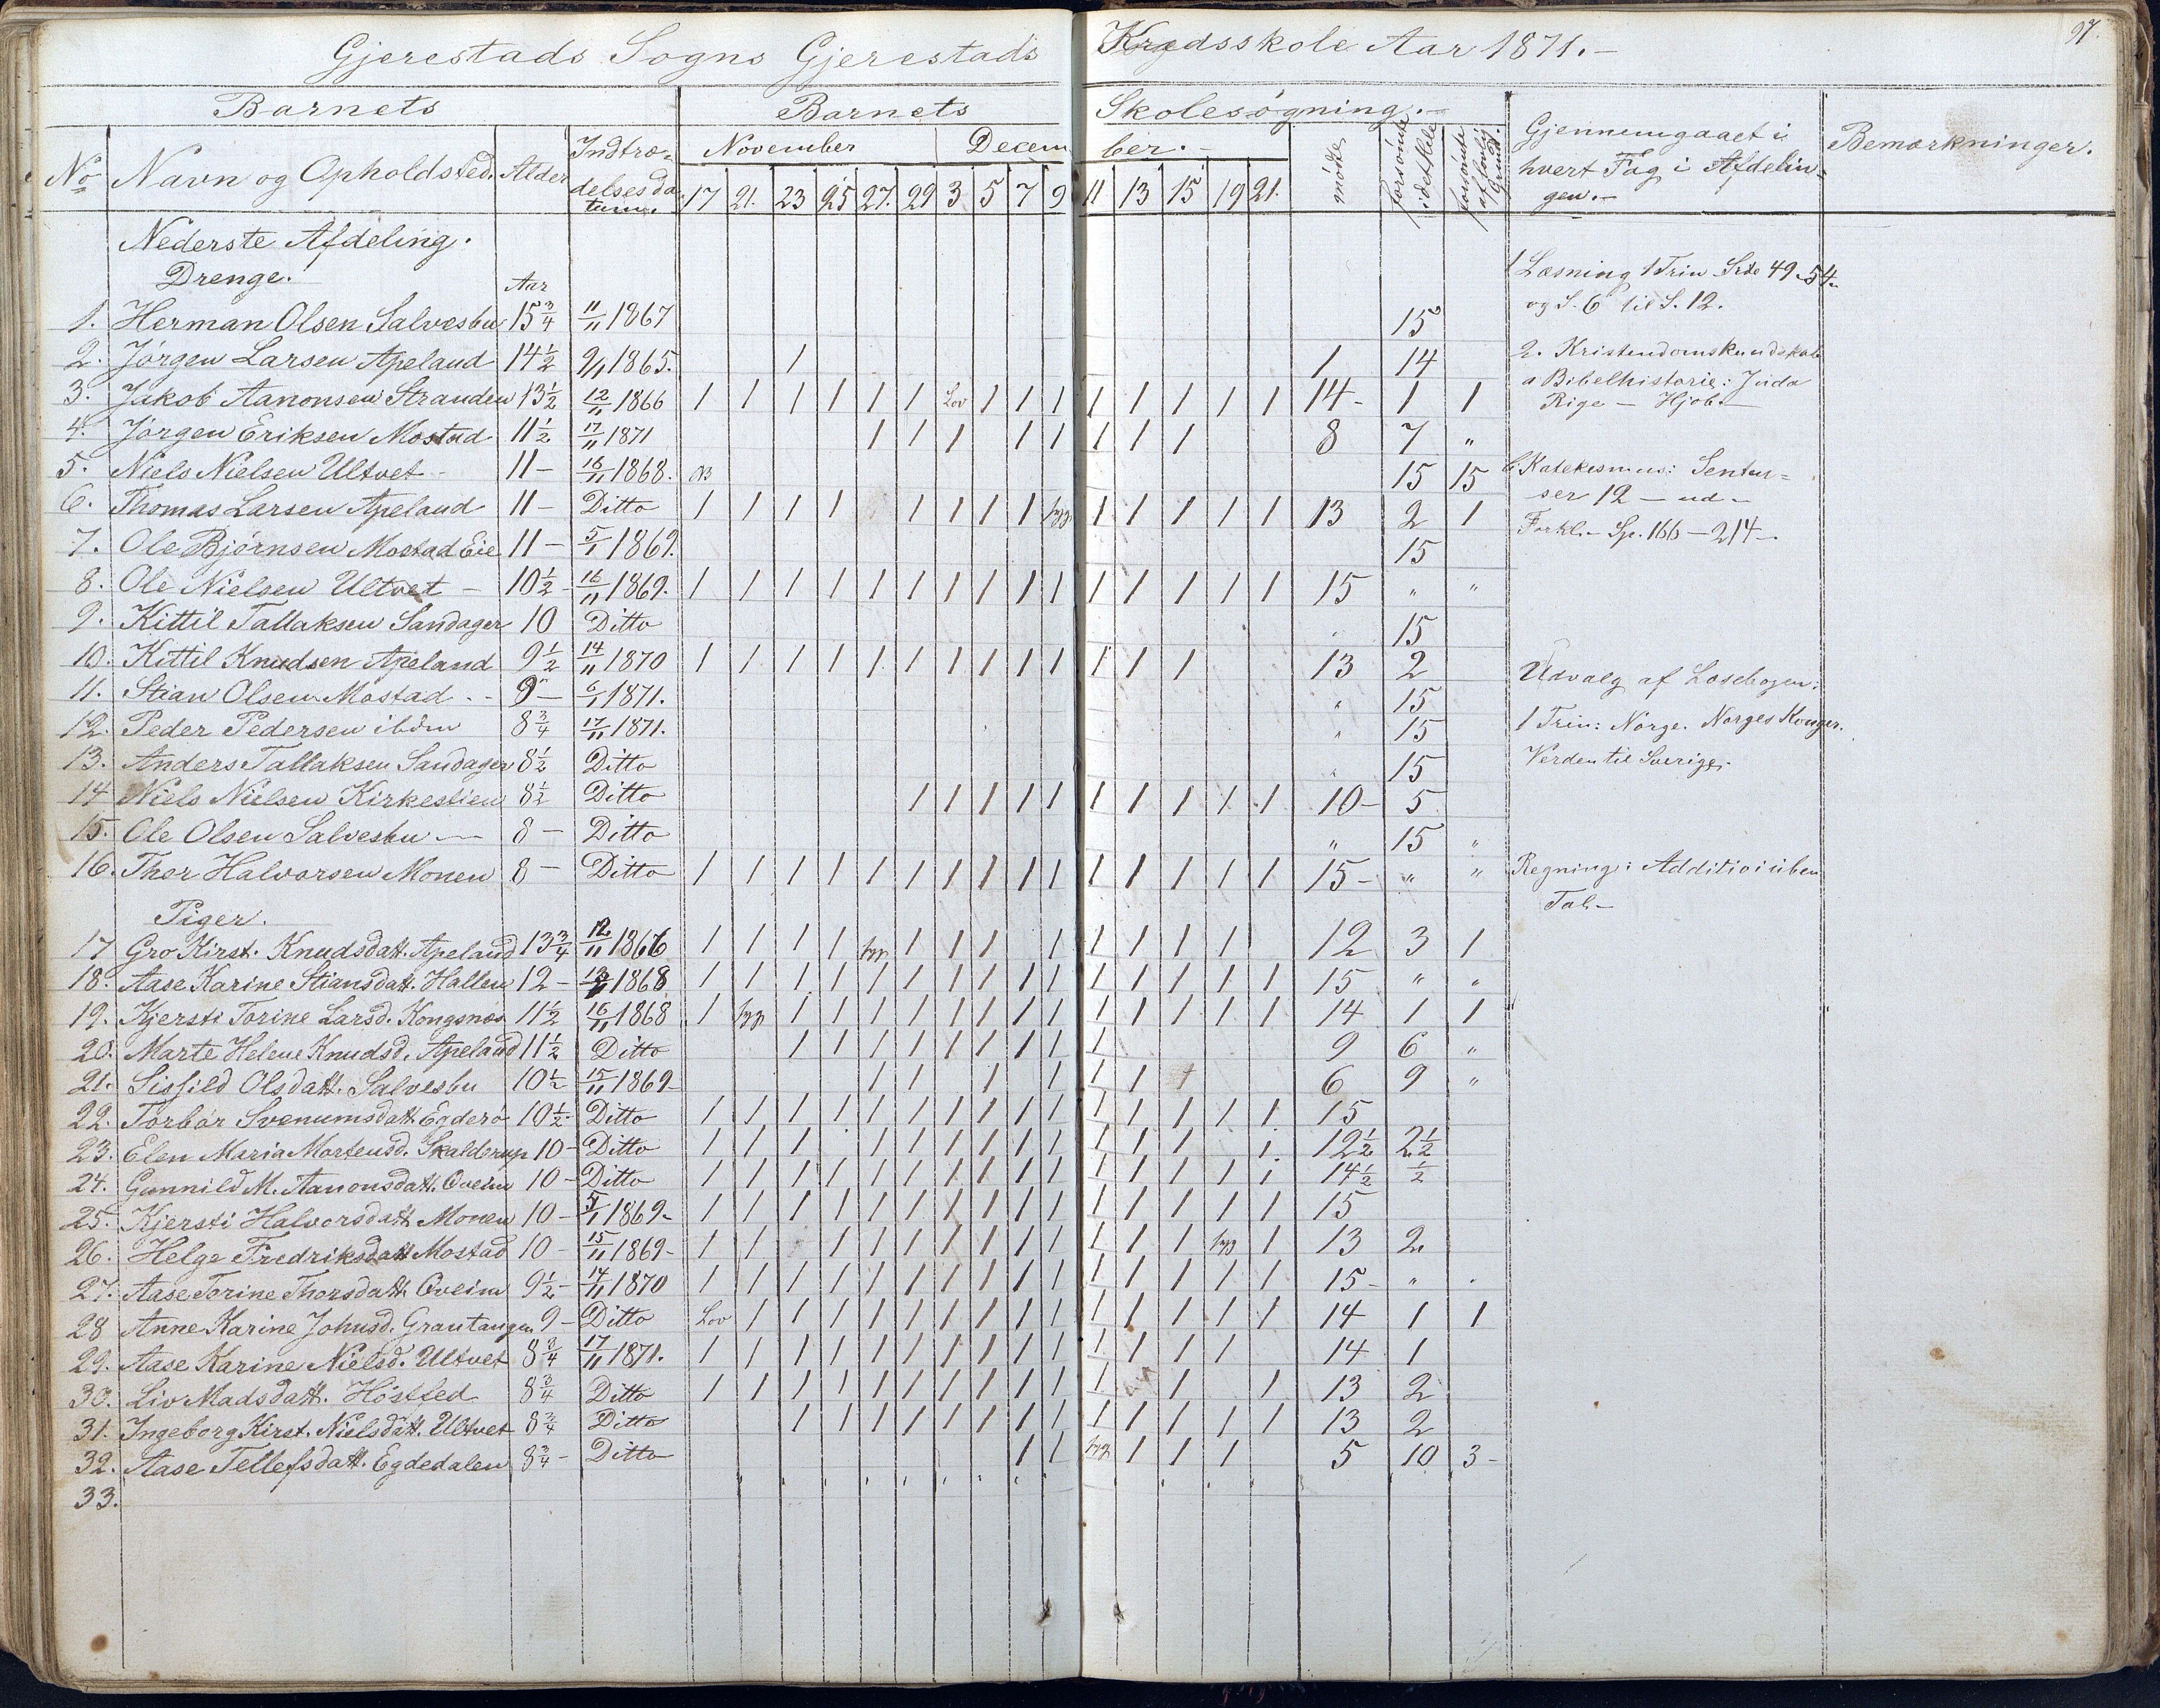 97.
Gjerestads Sogns Gjerestads Kredsskole Aar 1871.-
Barnets | Barnets Skolesøgning.-
No | Navn og Opholdsted. | Alder | Indtrædelsesdatum. | November 17 | 21. | 23 | 25 | 27. | 29 | December.- 3 | 5 | 7 | 9 | 11 | 13 | 15 | 19 | 21. | mødte | forsømte i det Hele | forsømte af lovlig Grund. | Gjennemgaaet i hvert Fag i Afdelingen.- | Bemærkninger.
Nederste Afdeling.
Drenge. Aar
1. Herman Olsen Salvesbu 15 3/4 11/11 1867 15
2. Jørgen Larsen Apeland 14 1/2 9/1 1865. 1 1 14
3. Jakob Aanonsen Stranden 13 1/2 12/11 1866 1 1 1 1 1 1 Lov 1 1 1 1 1 1 1 1 14- 1 1
4. Jørgen Eriksen Mostad 11 1/2 17/11 1871 1 1 1 1 1 1 1 1 8 7 "
5. Niels Nielsen Ultvet- 11- 16/11 1868. 15 15
6. Thomas Larsen Apeland 11- Ditto 1 1 1 1 1 1 1 1 syg 1 1 1 1 1 13 2 1
7. Ole Bjørnsen Mostad Eie 11- 5/1 1869. 15
8. Ole Nielsen Ultvet - 10 1/2- 16/11 1869. 1 1 1 1 1 1 1 1 1 1 1 1 1 1 1 15 " "
9. Kittil Tallaksen Sandager 10 Ditto " 15
10. Kittil Knudsen Apeland 9 1/2 14/11 1870 1 1 1 1 1 1 1 1 1 1 1 1 1 13 2
11. Stian Olsen Mostad.- 9- 6/1 1871. " 15
12. Peder Pedersen ibdm 8 3/4 17/11 1871. " 15
13. Anders Tallaksen Sandager 8 1/2 Ditto " 15
14 Niels Nielsen Kirkestien 8 1/2 Ditto 1 1 1 1 1 1 1 1 1 1 10- 5
15. Ole Olsen Salvesbu - 8- Ditto " 15 "
16. Thor Halvorsen Monen 8- Ditto 1 1 1 1 1 1 1 1 1 1 1 1 1 1 1 15- " "
Piger.
17 Gro Kirst. Knudsdatt. Apeland 13 3/4 12/11 1866 1 1 1 1 syg 1 1 1 1 1 1 1 1 12 3 1
18. Aase Karine Stiansdatt. Hallen 12- 1868 1 1 1 1 1 1 1 1 1 1 1 1 1 1 1 15 " "
19. Kjersti Torine Larsd. Kongsnæs 11 1/2 16/11 1868 1 syg 1 1 1 1 1 1 1 1 1 1 1 1 1 14 1 1
20. Marte Helene Knudsd. Apeland 11 1/2 Ditto 1 1 1 1 1 1 1 1 1 9 6 "
21. Sissild Olsdatt. Salvesbu 10 1/2 15/11 1869- 1 1 1 1 1 1 1 6 9 "
22. Torbør Svenumsdatt. Egderø 10 1/2- Ditto 1 1 1 1 1 1 1 1 1 1 1 1 1 1 1 15
23. Elen Maria Mortensd. Skalderup 10- Ditto 1 1 1 1 1 1 1 1 1 1 1 1 1 12 1/2 2 1/2
24. Gunnild M. Aanonsdatt. Oveim 10- Ditto 1 1 1 1 1 1 1 1 1 1 1 1 1 1 1 14 1/2 1/2
25. Kjersti Halvorsdatt. Monen 10- 5/1 1869- 1 1 1 1 1 1 1 1 1 1 1 1 1 1 1 15
26. Helge Fredriksdatt Mostad 10- 15/11 1869- 1 1 1 1 1 1 1 1 1 1 1 1 syg 1 13 2
27. Aase Torine Thorsdatt. Oveim 9 1/2- 14/11 1870 1 1 1 1 1 1 1 1 1 1 1 1 1 1 1 15- " "
28 Anne Karine Johnsd. Grautangen 9- Ditto Lov 1 1 1 1 1 1 1 1 1 1 1 1 1 1 14 1 1
29. Aase Karine Nielsd. Ultvet 8 3/4 17/11 1871. 1 1 1 1 1 1 1 1 1 1 1 1 1 1 14 1
30. Liv Madsdatt. Høsfled 8 3/4 Ditto 1 1 1 1 1 1 1 1 1 1 1 1 1 13 2
31. Ingeborg Kirst. Nielsdatt. Ultvet 8 3/4 Ditto 1 1 1 1 1 1 1 1 1 1 1 1 1 13 2
32. Aase Tellefsdatt. Egdedalen 8 3/4- Ditto 1 1 syg 1 1 1 5 10 3-
33.
1 Læsning 1 Trin Side 49-54-
og S. 6 til S. 12.
2. Kristendomskundskab
a Bibelhistorie: Juda
Rige - Hjob.-
b Katekismus: Senten=
ser 12 - ud-
Forkl.- Sp. 166-214-
Udvalg af Læsebogen:
1 Trin: Norge. Norges Konger.
Verden til Sverige.
Regning: Addition i uben
Tal-